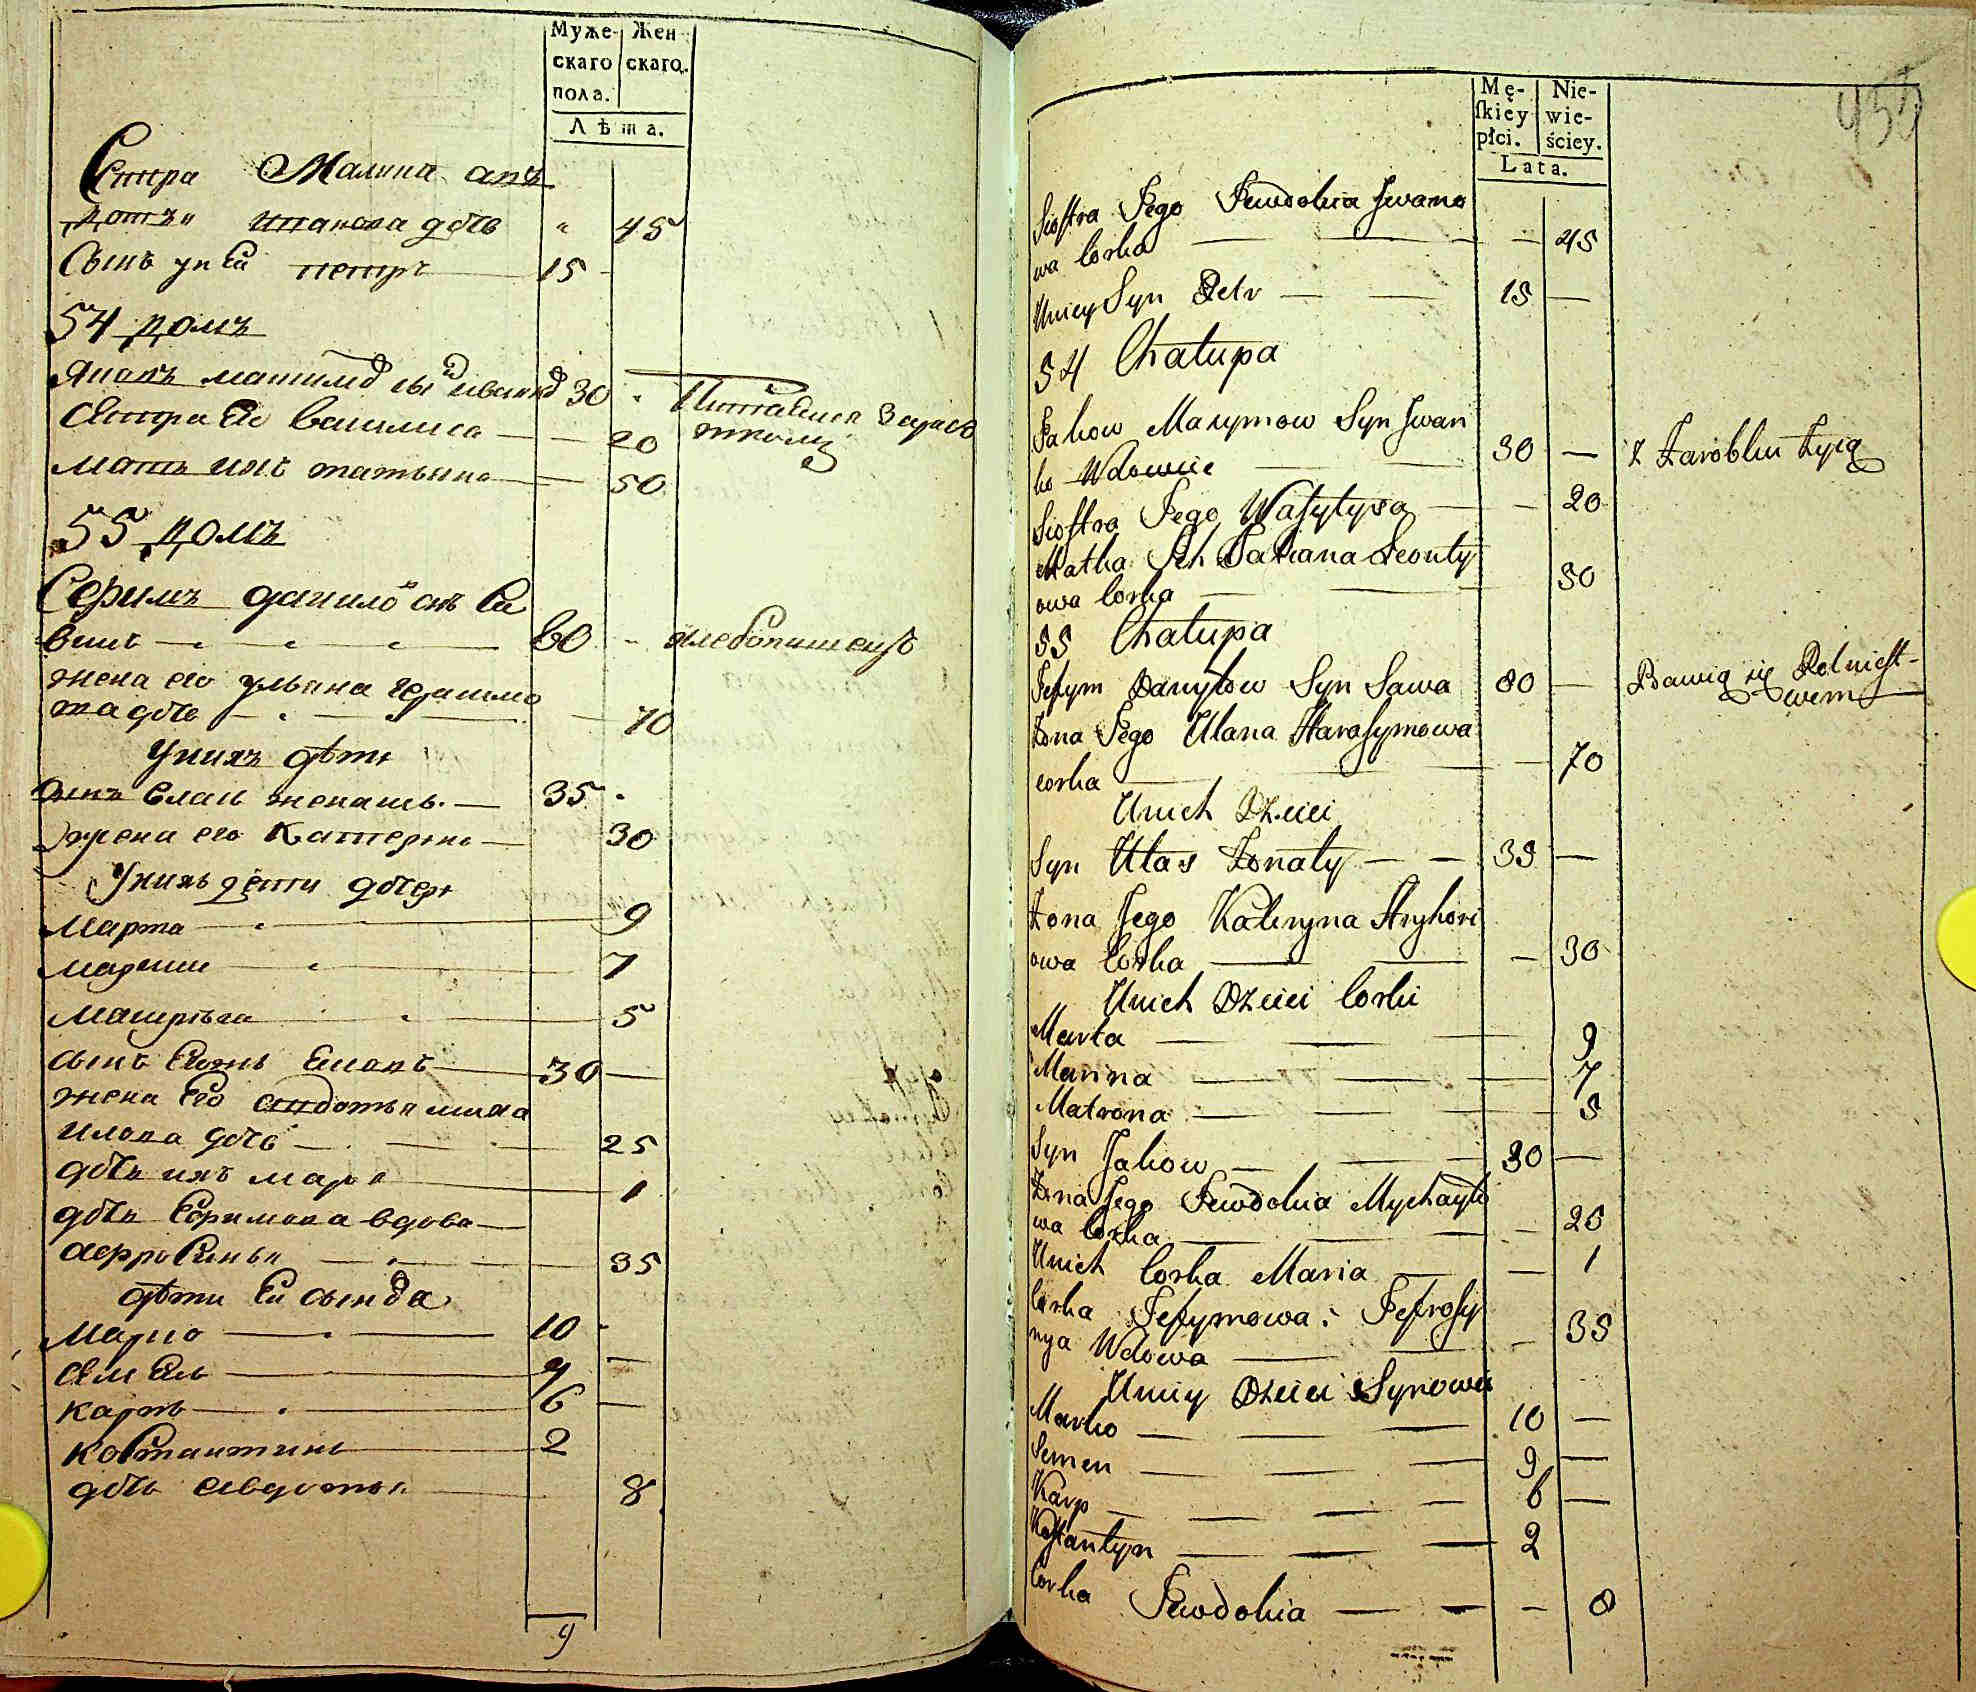 Муже- Жен
скаго скаго.
пола.
Лѣта.
Сестра
дочь 45
Сынъ унеи петръ 15
54 домъ
30
Сестра Ее василиса 20
мать ихъ татьяна 50
55 домъ
Сефимъ данило снъ Са
вишъ 60 хлебопашецъ
жена его ульяна герасимо
ва дочь 70
Унихъ дѣти
Сынъ влась женатъ 35
жена его Катерина 30
Унихъ дети дочери
марта 9
марина 7
5
сынъ 30
жена Его миха
илова дочь 25
дочь ихъ марья 1
дочь Ефимова вдова
35
дѣти Еи сынова
марко 10
семенъ 9
карпъ 6
костантинъ 2
дочь евдотья 8
9
455
Mę- Nie-
skiey wie-
płci. ściey.
Lata.
Siostra Jego Jewdokia Jwano
wa Corka 45
Uniey Syn Petr 15
54 Chałupa
Jakow Maxymow Syn Jwan
ko Wdowiec 30 — z Zarobku żyią
Siostra Jego Wasylysa 20
Matka Jch Tatiana Leonty
owa Corka 50
55 Chałupa
Jefym Danyłow Syn Sawa 80 — Bawią się Rolnict-
wem
Zona Jego Ulana Harasymowa
corka 70
Unich Dzieci
Syn Ułas Zonaty 35 —
Zona Jego Kateryna Hryhori
owa Corka 30
Unich Dzieci Corki
Marta 9
Marina 7
Matrona 5
Syn Jakow 30 —
Zona Jego Jewdokia Mychayło
wa Corka 25
Unich Corka Maria 1
Corka Jefymowa Jefrosy
nya Wdowa 35
Uniey Dzieci Synowie
Marko 10 —
Semen 9 —
Karp 6 —
Kostantyn 2
Corka Jewdokia 8